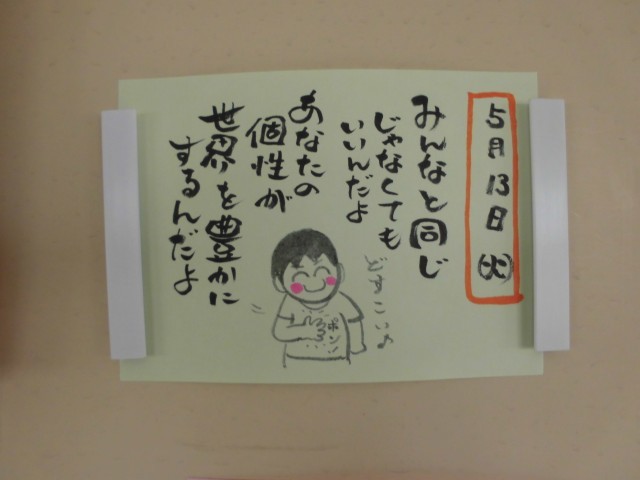 5月13日(火)
みんなと同じ
じゃなくても
いいんだよ
あなたの
個性が
世界を豊かに
するんだよ
どすこい♪
ポン!